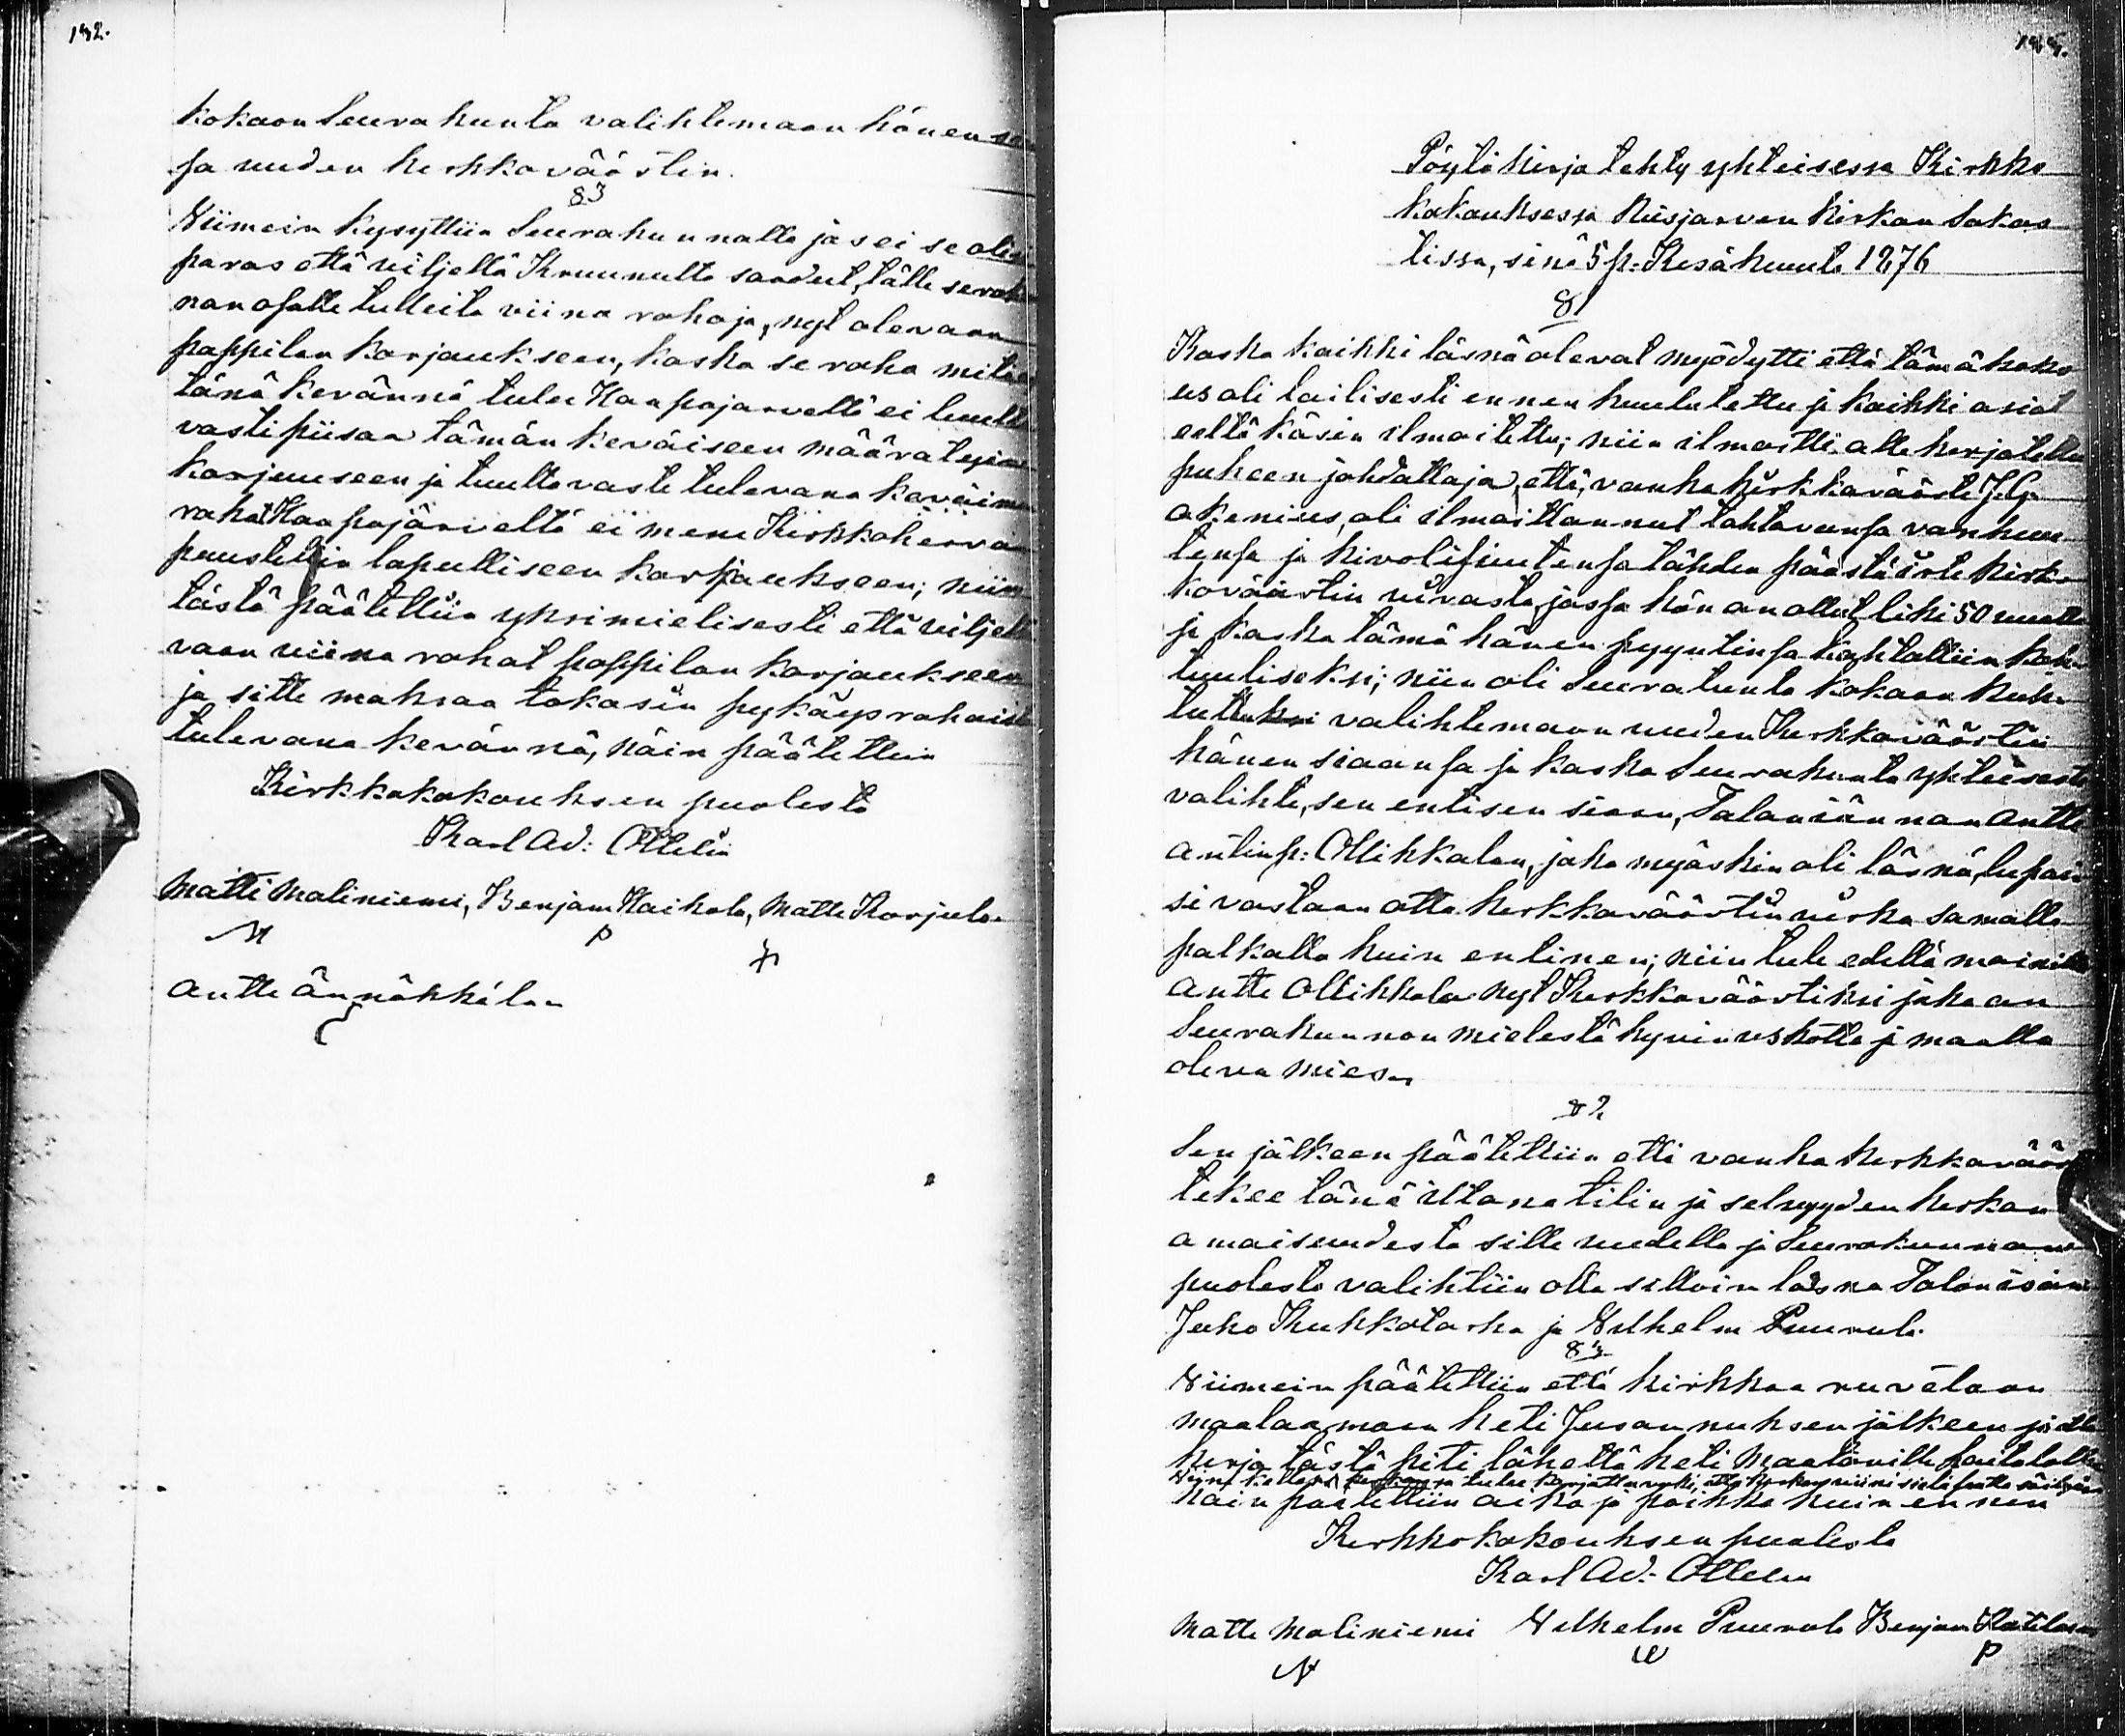 192.
kokoon Seurakunta valihtemaan hänen
sa uuden kirkkoväästin.
§3
Viimein kysyttiin Seurakunnalta jos ei se olisi
paras että viljellä Kruunulta saadut, tälle seurakun
nan osalle tulleita viina rahoja, nyt olevaan
pappilan korjaukseen, koska se raha mikä
tänä kevännä tulee Haapajarvelta ei luulta
vasti piisaa tämän keväiseen määrätyyn
korjuuseen ja luultavaste tulevana keväimen
rahat Haapajärveltä ei mene Kirkkoherran
puustellin lopulliseen korjaukseen; niin
tästä päätettiin yksimielisesti että viljellä
vaan viina rahat pappilan korjaukseen
ja sitte maksaa takasin pykäys rahoista
tulevana kevännä, näin päätettiin
Kirkkokokouksen puolesta
Karl Ad: Ottelin
Matti Maliniemi, Benjam Kaikola, Matti Korjula
Antti Ännäkkälän
Pöytäkirja tehty yhteisessa Kirkko
kokouksessa Kiisjarven Kirkon Sakas
tissa, sinä 5 p: Kesäkuuta 1876
§1
Koska kaikki läsnä olevat myödytti että tämä koko
us oli lailisesti ennen kuulutettu ja kaikki asiat
eeltä käsin ilmoitettu; niin ilmoitti alle kirjotettu
puheen johdattaja, että, vanha kirkkoväästi J. G.
akenius, oli ilmoittannut tahtovansa vanhuu
tensa ja kivolisuutensa tähden päästä irti kirk
koväärtin virasta, jossa hän on ollut liki 50 vuotta
ja koska tämä hänen pyyntinsa kohtattiin koh
tuuliseksi; niin oli Seurakunta kokoon kuh
tuttu valihtemaan uuden Kirkkoväärtin
hänen siaansa ja koska Seurakunta yhteisesti
valihti, sen entisen siaan, Talonisännan Antti
Antinp: Ollikkalan, joka myöskin oli läsnä, lupai
si vastaan otta kirkkoväärtin virka samalla
palkalla kuin entinen; niin tule edellä mainittu
Antti Ollikkala nyt Kirkkoväärtiksi joka on
Seurakunnan mielestä hyvin uskotta ja maalla
oleva mies.
§2
Sen jälkeen päätettiin etti vanha kirkkoväär
tekee tänä iltana tilin ja selvyyden kirkon
omaisuudesta sille uudella ja Seurakunnan
puolesta valihtiin olla silloin läsna Talon isän
Juho Kukkotarha ja Vilhelm Puurula.
§3
Viimein päätettiin että kirkkoa ruvetaan
maalaamaan heti Jusannuksen jälkeen ja että
kirja tästä piti lähettä heti Maalarille
näin päätettiin aika ja paikka kuin ennen
Kirkkokokouksen puolesta
Karl Ad: Ottelin
Matti Maliniemi Vilhelm Puurula Benjam